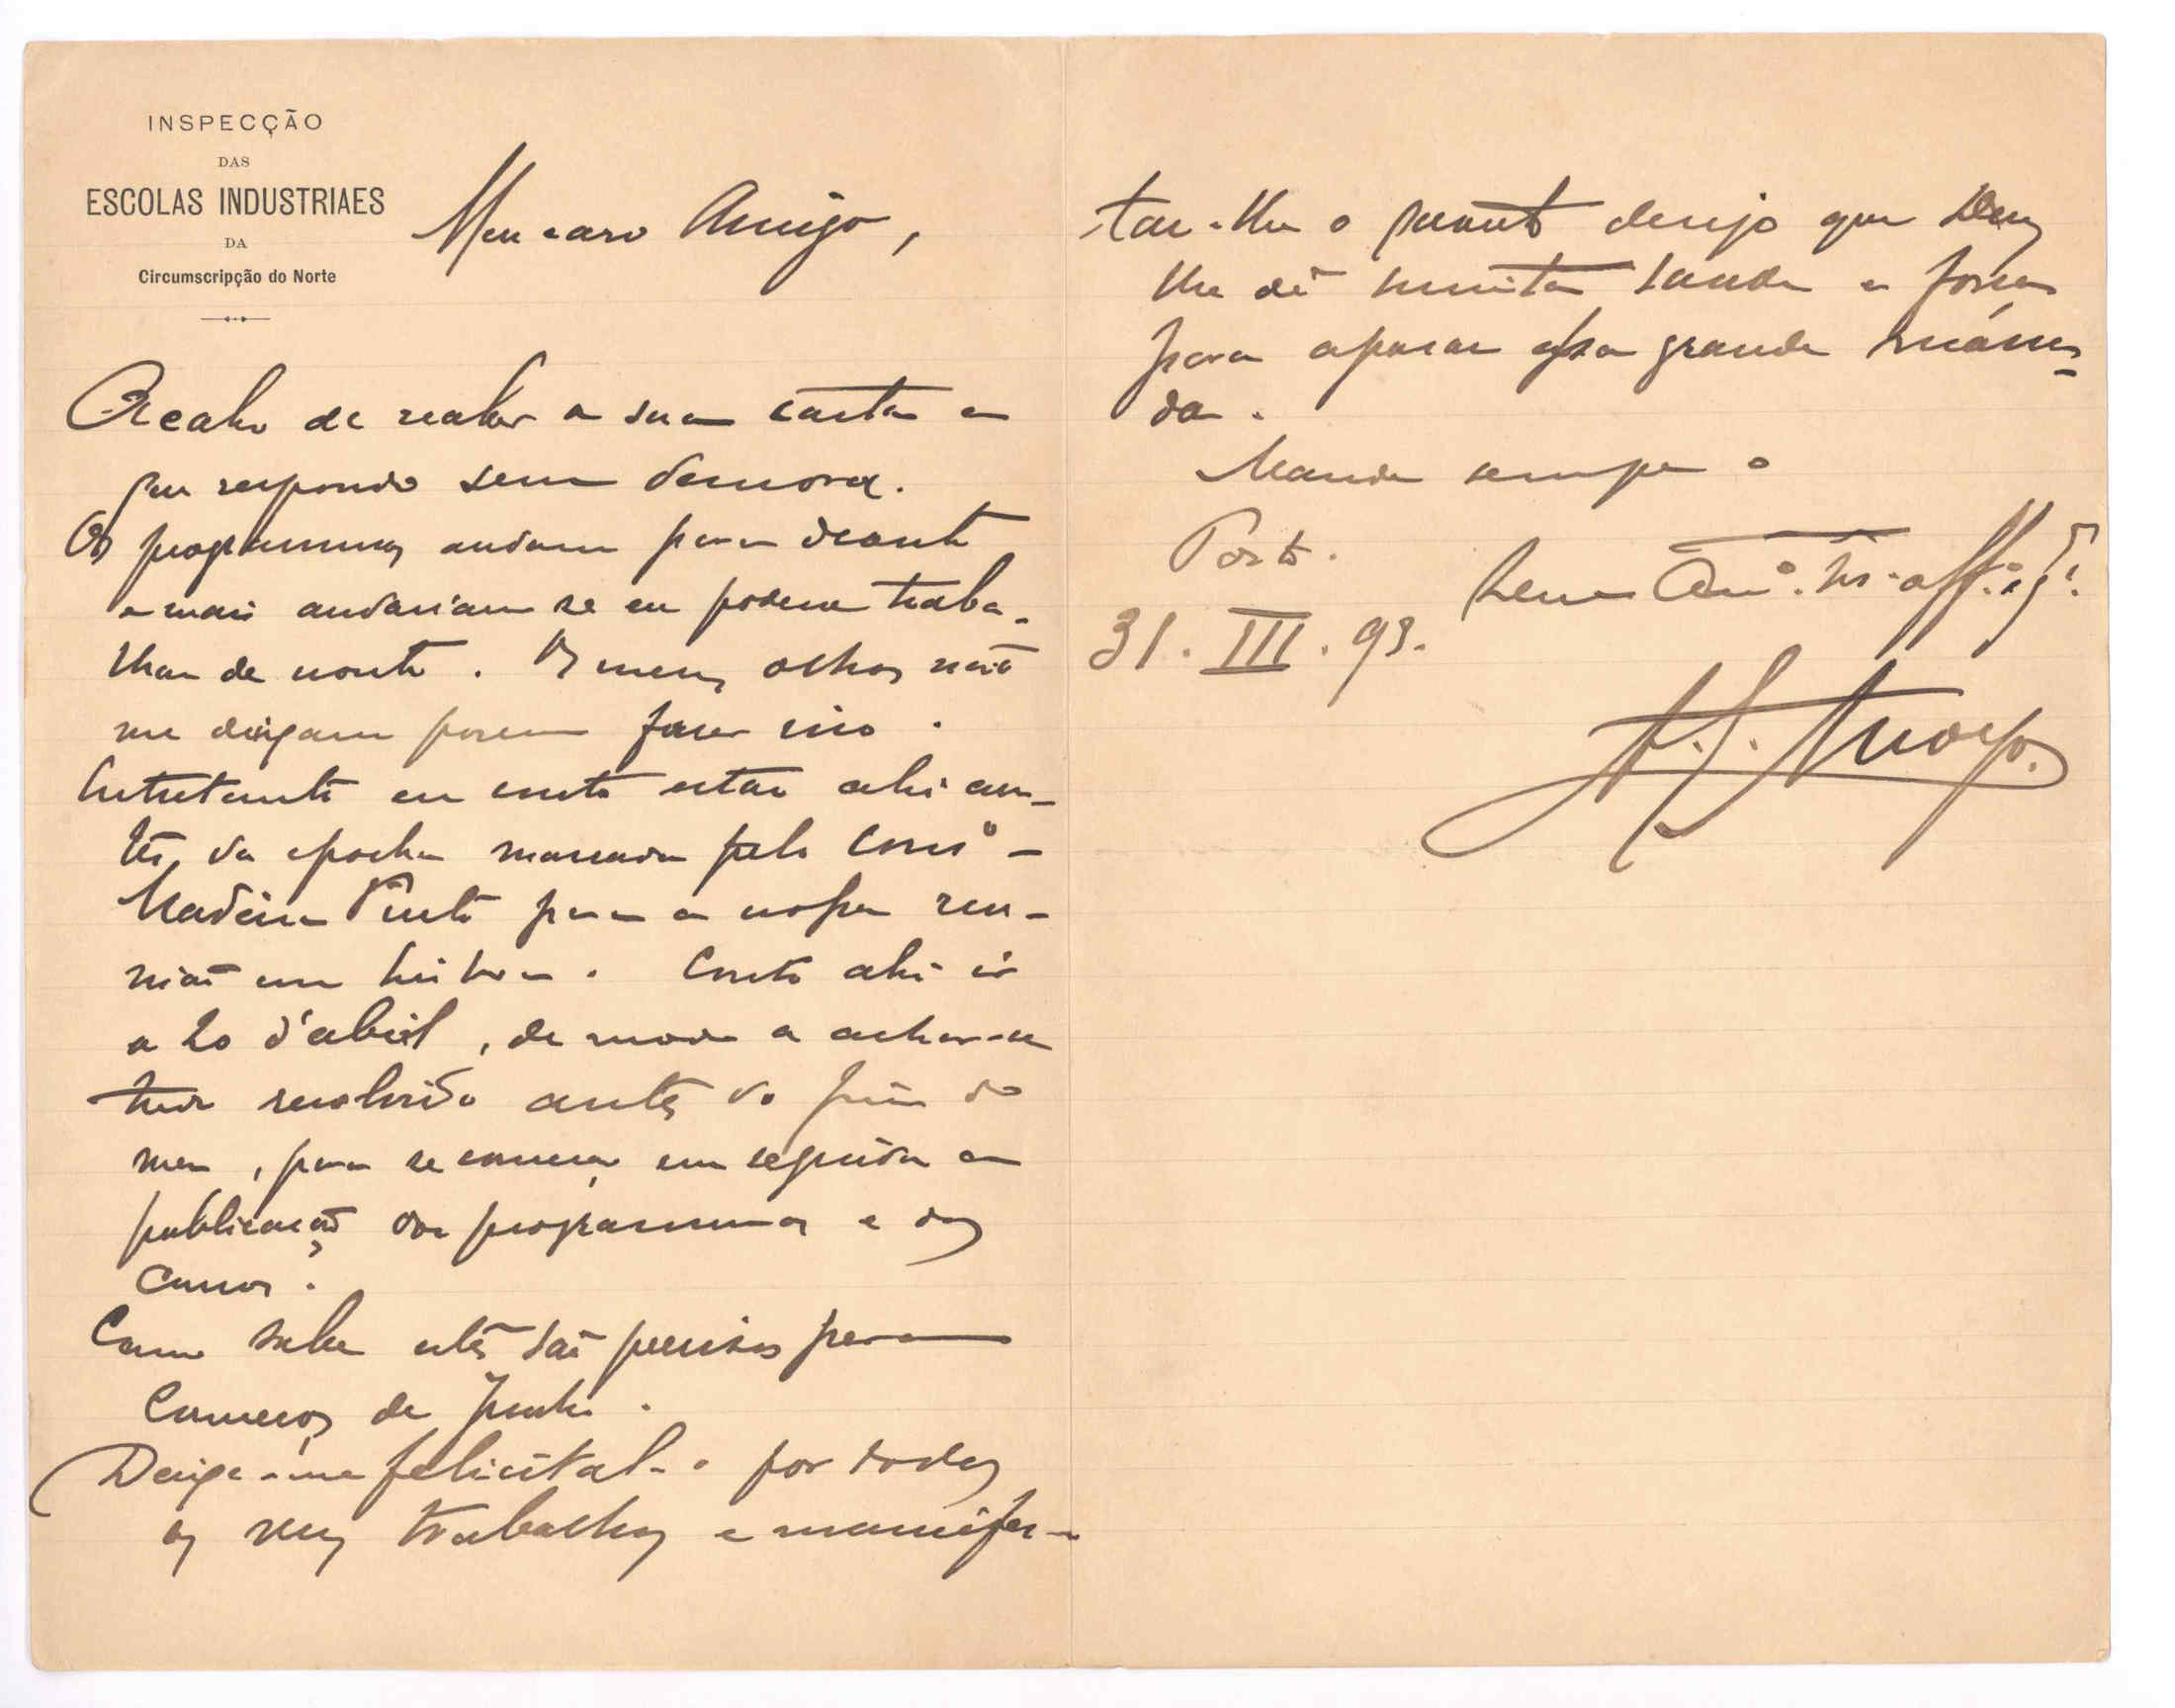 INSPECÇÃO
DAS
ESCOLAS INDUSTRIAES
DA
Circumscripção do Norte
Meu caro Amigo,
Acabo de receber a sua carta a
que respondo sem demora.
Os programmas andam para deante
e mais andariam se eu podesse traba-
lhar de noute. Os meus olhos não
me deixam porem fazer isso.
Entretanto eu conto estar ahi an-
tes da epocha marcada pelo Cons.º
Madeira Pinto para a nossa reu-
nião em Lisboa. Conto ahi ir
a 20 d'abril, de modo a achar-se
tudo resolvido antes do fim do
mez, para se começar em seguida a
publicação dos programmas e dos
cursos.
Como sabe estes são precisos para
Começos de Junho.
Deixe-me felicital-o por todos
os seus trabalhos e manifes-
tar-lhe o desejo que Deus
lhe dê muita saude e forças
para apurar essa grande
da.
Mande sempre o
Porto.
31.III.93.
Seu Am.º